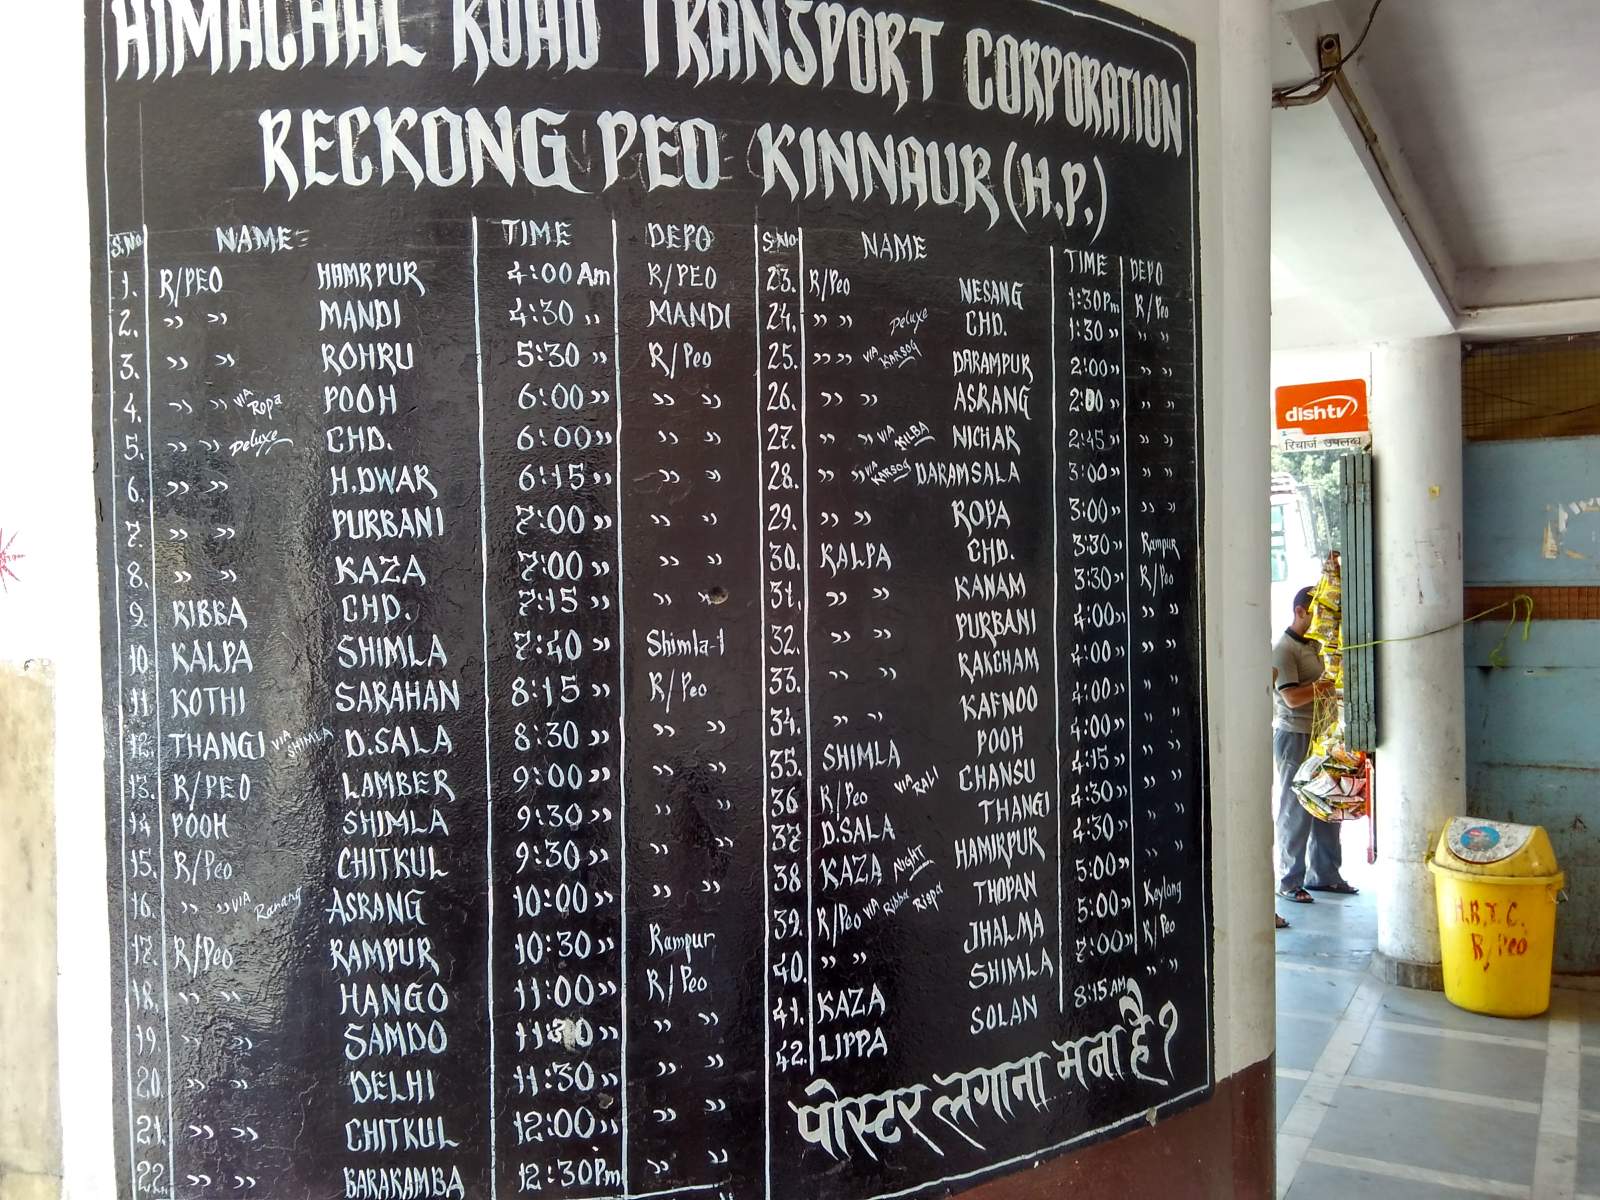 HIMACHAL ROAD TRANSPORT CORPORATION
RECKONG PEO KINNAUR (H.P.)
S.No NAME TIME DEPO
1. R/PEO HAMRPUR 4:00 Am R/PEO
2. " " MANDI 4:30 " MANDI
3. " " ROHRU 5:30 " R/Peo
4. " " VIA Ropa POOH 6:00 " " "
5. " " Deluxe CHD. 6:00 " " "
6. " " H.DWAR 6:15 " " "
7. " " PURBANI 7:00 " " "
8. " " KAZA 7:00 " " "
9. RIBBA CHD. 7:15 " " "
10. KALPA SHIMLA 7:40 " Shimla-1
11. KOTHI SARAHAN 8:15 " R/Peo
12. THANGI VIA SHIMLA D.SALA 8:30 " " "
13. R/PEO LAMBER 9:00 " " "
14 POOH SHIMLA 9:30 " " "
15. R/Peo CHITKUL 9:30 " " "
16. " " VIA Ranang ASRANG 10:00 " " "
17. R/Peo RAMPUR 10:30 " Rampur
18. " " HANGO 11:00 " R/Peo
19. " " SAMDO 11:30 " " "
20. " " DELHI 11:30 " " "
21. " " CHITKUL 12:00 " " "
22. " " BARAKAMBA 12:30 Pm " "
S.No NAME TIME DEPO
23. R/Peo NESANG 1:30 Pm R/Peo
24. " " Deluxe CHD. 1:30 " " "
25. " " VIA KARSOG DARAMPUR 2:00 " " "
26. " " ASRANG 2:00 " " "
27. " " VIA KILBA NICHAR 2:45 " " "
28. " " VIA KARSOG DARAMSALA 3:00 " " "
29. " " ROPA 3:00 " " "
30. KALPA CHD. 3:30 " Rampur
31. " " KANAM 3:30 " R/Peo
32. " " PURBANI 4:00 " " "
33. " " RAKCHAM 4:00 " " "
34. " " KAFNOO 4:00 " " "
35. SHIMLA POOH 4:00 " " "
36 R/Peo VIA RALI CHANSU 4:15 " " "
37 D.SALA THANGI 4:30 " " "
38 KAZA NIGHT HAMIRPUR 4:30 " " "
39. R/Peo VIA Ribba Riopa THOPAN 5:00 " " "
40. " " JHALMA 5:00 " Keylong
41. KAZA SHIMLA 7:00 " R/Peo
42. LIPPA SOLAN 8:15 AM " "
पोस्टर लगाना मना है ?
dishtv
रिचार्ज उपलब्ध
H.R.T.C.
R/Peo